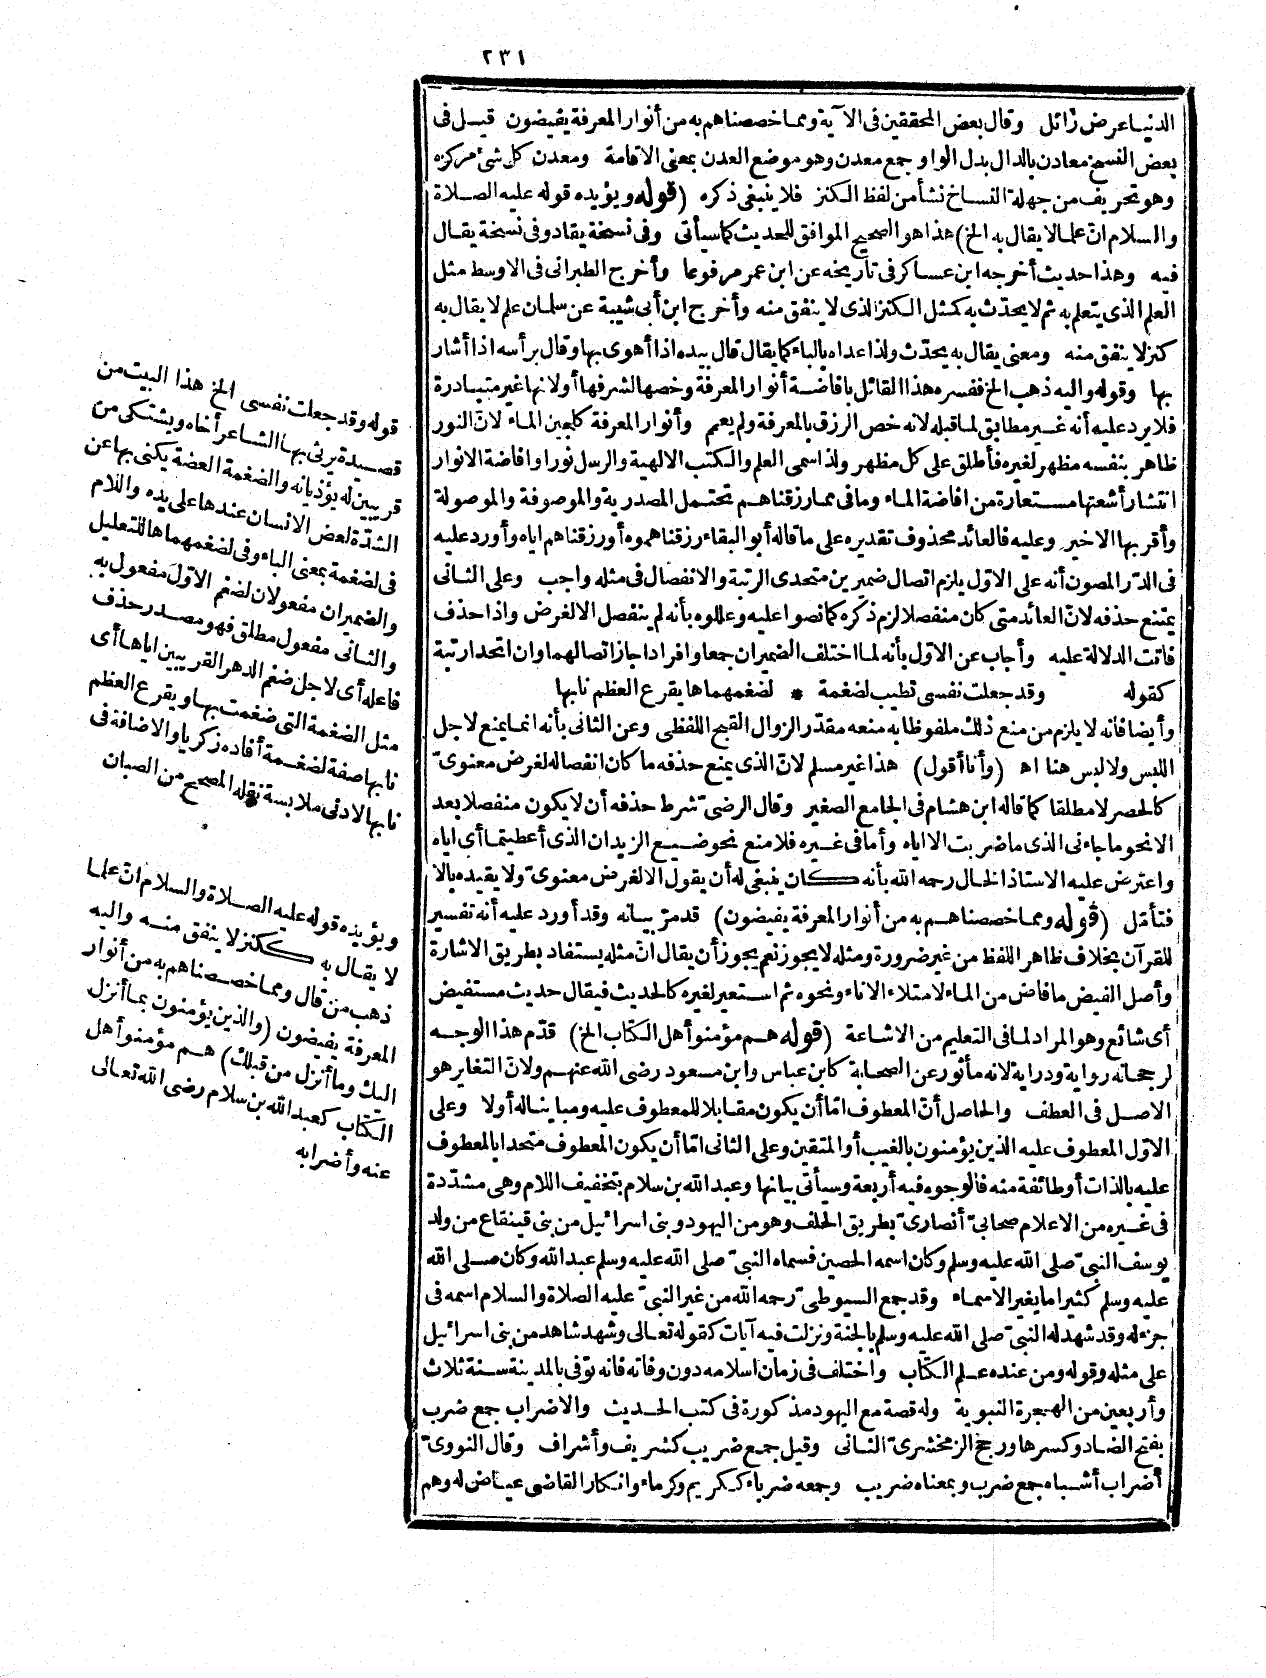 ٢٣١
الدنيا عرض زائل وقال بعض المحققين فى الآية ومما خصصناهم به من أنوار المعرفة يفيضون قيل فى
بعض النسخ معادن بالدال بدل الواو جمع معدن وهو موضع العدن بمعنى الاقامة ومعدن كل شئ مركزه
وهو تحريف من جهلة النساخ نشأ من لفظ الكنز فلا ينبغى ذكره (قوله ويؤيده قوله عليه الصلاة
والسلام ان علما لا يقال به الخ) هذا هو الصحيح الموافق للحديث كما سيأتى وفى نسخة يقاد وفى نسخة يقال
فيه وهذا حديث أخرجه ابن عساكر فى تاريخه عن ابن عمر مرفوعا وأخرج الطبرانى فى الاوسط مثل
العلم الذى يتعلم به ثم لا يحدّث به كمثل الكنز الذى لا ينفق منه وأخرج ابن أبى شيبة عن سلمان علم لا يقال به
كنز لا ينفق منه ومعنى يقال به يحدّث ولذا عداه بالباء كما يقال قال بيده اذا أهوى بها وقال برأسه اذا أشار
بها وقوله واليه ذهب الخ ففسره هذا القائل بافاضة أنوار المعرفة وخصها لشرفها أولانها غير متبادرة
فلا يرد عليه أنه غير مطابق لما قبله لانه خص الرزق بالمعرفة ولم يعمم وأنوار المعرفة كلجين الماء لانّ النور
ظاهر بنفسه مظهر لغيره فأطلق على كل مظهر ولذا سمى العلم والكتب الالهية والرسل نورا وافاضة الانوار
انتشار أشعتها مستعارة من افاضة الماء وما فى مما رزقناهم تحتمل المصدرية والموصوفة والموصولة
وأقربها الاخير وعليه فالعائد محذوف تقديره على ما قاله أبو البقاء رزقناهموه أو رزقناهم اياه وأورد عليه
فى الدرّ المصون أنه على الاوّل يلزم اتصال ضميرين متحدى الرتبة والانفصال فى مثله واجب وعلى الثانى
يمتنع حذفه لانّ العائد متى كان منفصلا لزم ذكره كما نصوا عليه وعللوه بأنه لم ينفصل الالغرض واذا حذف
فاتت الدلالة عليه وأجاب عن الاوّل بأنه لما اختلف الضميران جمعا وافرادا جاز اتصالهما وان اتحدا رتبة
كقوله وقد جعلت نفسى تطيب لضغمة * لضغمهماها يقرع العظم نابها
وأيضا فانه لا يلزم من منع ذلك ملفوظا به منعه مقدّر الزوال القبح اللفظى وعن الثانى بأنه انما يمنع لاجل
اللبس ولا لبس هنا اه (وأنا أقول) هذا غير مسلم لانّ الذى يمنع حذفه ما كان انفصاله لغرض معنوىّ
كالحصر لا مطلقا كما قاله ابن هشام فى الجامع الصغير وقال الرضىّ شرط حذفه أن لا يكون منفصلا بعد
الا نحو ما جاءنى الذى ما ضربت الا اياه وأما فى غيره فلا منع نحو ضيع الزيدان الذى أعطيتهما أى اياه
واعترض عليه الاستاذ الخال رحمه الله بأنه كان ينبغى له أن يقول الالغرض معنوىّ ولا يقيده بالا
فتأمّل (قوله ومما خصصناهم به من أنوار المعرفة يفيضون) قد مرّ بيانه وقد أورد عليه أنه تفسير
للقرآن بخلاف ظاهر اللفظ من غير ضرورة ومثله لا يجوز نعم يجوز أن يقال انّ مثله يستفاد بطريق الاشارة
وأصل الفيض ما فاض من الماء لامتلاء الاناء ونحوه ثم استعير لغيره كالحديث فيقال حديث مستفيض
أى شائع وهو المراد لما فى التعليم من الاشاعة (قوله هم مؤمنو أهل الكتاب الخ) قدّم هذا الوجه
لرجحانه رواية ودراية لانه مأثور عن الصحابة كابن عباس وابن مسعود رضى الله عنهم ولانّ التغاير هو
الاصل فى العطف والحاصل أنّ المعطوف امّا أن يكون مقابلا للمعطوف عليه ومباينا له أولا وعلى
الاوّل المعطوف عليه الذين يؤمنون بالغيب أو المتقين وعلى الثانى امّا أن يكون المعطوف متحدا بالمعطوف
عليه بالذات أو طائفة منه فالوجوه فيه أربعة وسيأتى بيانها وعبد الله بن سلام بتخفيف اللام وهى مشدّدة
فى غيره من الاعلام صحابىّ أنصارىّ بطريق الحلف وهو من اليهود وبنى اسرائيل من بنى قينقاع من ولد
يوسف النبىّ صلى الله عليه وسلم وكان اسمه الحصين فسماه النبىّ صلى الله عليه وسلم عبد الله وكان صلى الله
عليه وسلم كثيرا ما يغير الاسماء وقد جمع السيوطىّ رحمه الله من غير النبىّ عليه الصلاة والسلام اسمه فى
جزء له وقد شهد له النبىّ صلى الله عليه وسلم بالجنة ونزلت فيه آيات كقوله تعالى وشهد شاهد من بنى اسرائيل
على مثله وقوله ومن عنده علم الكتاب واختلف فى زمان اسلامه دون وفاته فانه توفى بالمدينة سنة ثلاث
وأربعين من الهجرة النبوية وله قصة مع اليهود مذكورة فى كتب الحديث والاضراب جمع ضرب
بفتح الضاد وكسرها ورجح الزمخشرىّ الثانى وقيل جمع ضريب كشريف وأشراف وقال النووىّ
أضراب أشباه جمع ضرب وبمعناه ضريب وجمعه ضرباء ككريم وكرماء وانكار القاضى عياض له وهم
قوله وقد جعلت نفسى الخ هذا البيت من
قصيدة يرثى بها الشاعر أخاه ويشتكى من
قريبين له يؤذيانه والضغمة العضة يكنى بها عن
الشدّة لعض الانسان عندها على يده واللام
فى لضغمة بمعنى الباء وفى لضغمهماها للتعليل
والضميران مفعولان لضغم الاوّل مفعول به
والثانى مفعول مطلق فهو مصدر حذف
فاعله أى لاجل ضغم الدهر القريبين اياها أى
مثل الضغمة التى ضغمت بها ويقرع العظم
نابها صفة لضغمة أفاده زكريا والاضافة فى
نابها لادنى ملابسة نقله المصحح من الصبان
ويؤيده قوله عليه الصلاة والسلام انّ علما
لا يقال به ككنز لا ينفق منه واليه
ذهب من قال ومما خصصناهم به من أنوار
المعرفة يفيضون (والذين يؤمنون بما أنزل
اليك وما أنزل من قبلك) هم مؤمنو أهل
الكتاب كعبد الله بن سلام رضى الله تعالى
عنه وأضرابه